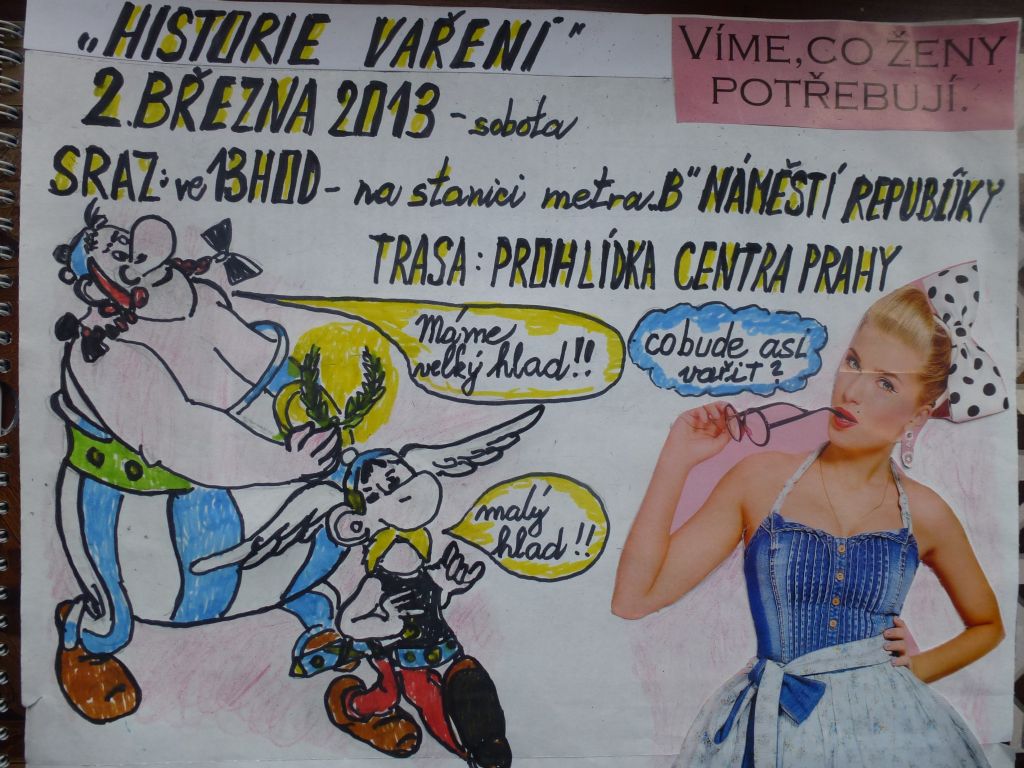 „HISTORIE VAŘENÍ"
VÍME, CO ŽENY
POTŘEBUJÍ.
2. BŘEZNA 2013 - sobota
SRAZ: ve 13 HOD - na stanici metra „B" NÁMĚSTÍ REPUBLIKY
TRASA: PROHLÍDKA CENTRA PRAHY
Máme
velký hlad!!
co bude asi
vařit?
malý
hlad!!